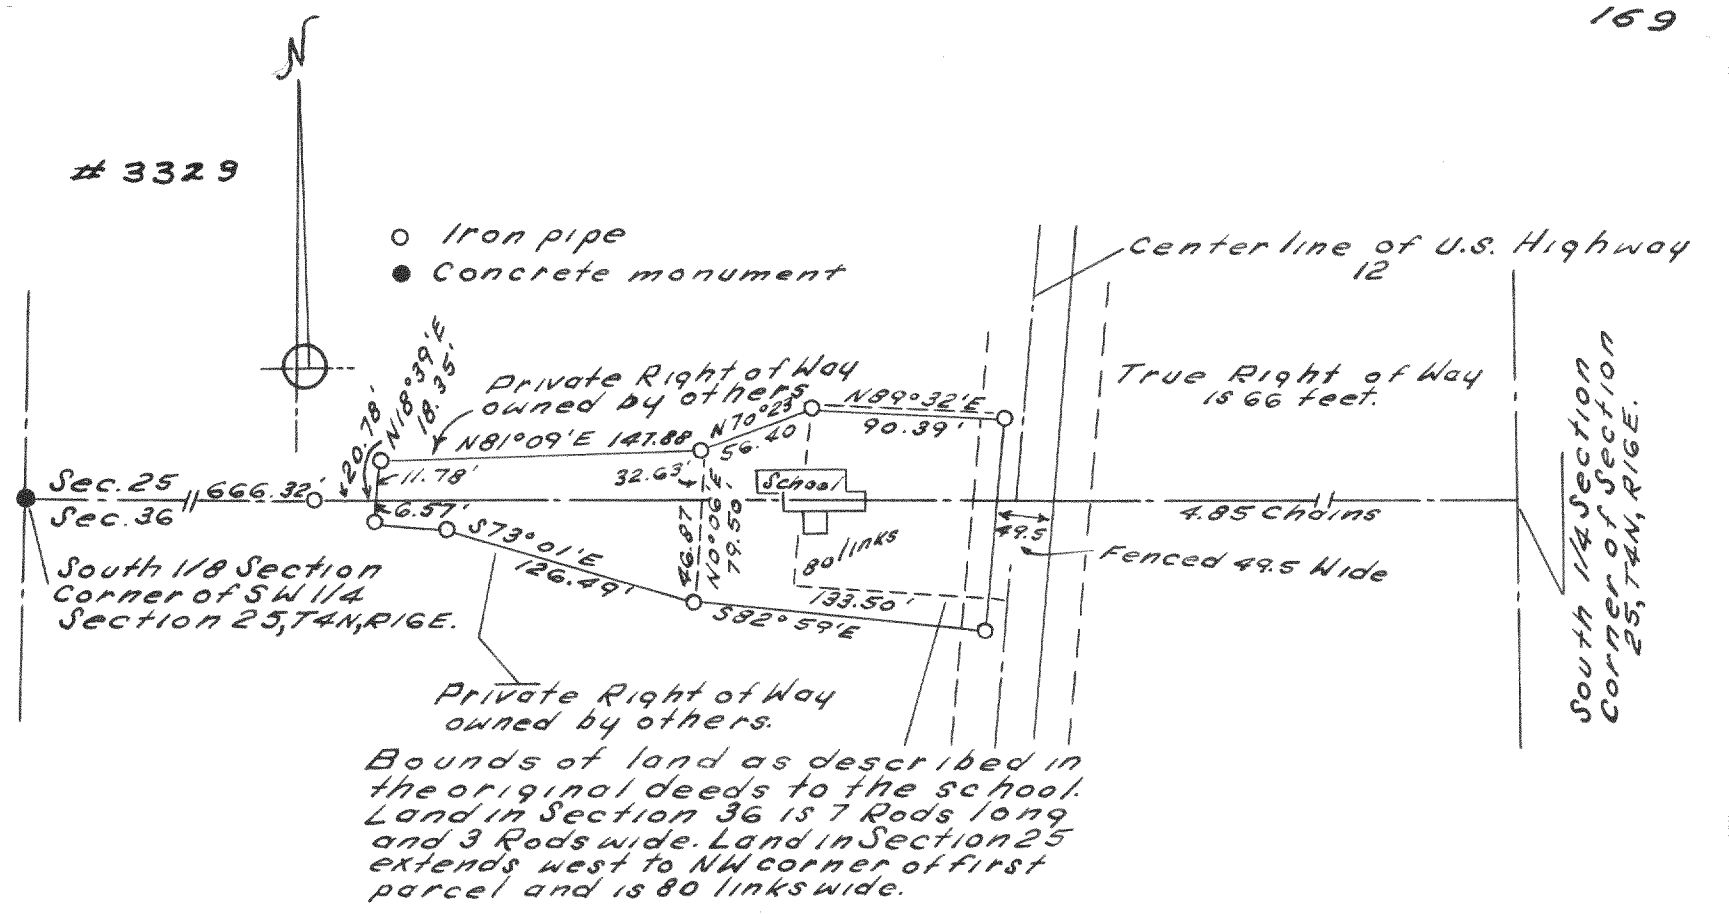 169
N
# 3329
Iron pipe
Concrete monument
Center line of U.S. Highway
12
True Right of Way
is 66 feet.
Private Right of Way
owned by others
N18°39'E
18.35'
20.78'
N81°09'E 147.88
N70°23'
56.40
N89°32'E
90.39'
11.78'
32.63'
School
Sec. 25
Sec. 36
666.32'
6.57'
S73°01'E
126.49'
46.87
N0°06'E
79.50'
80 links
133.50'
S82°59'E
49.5
4.85 Chains
Fenced 49.5 Wide
South 1/8 Section
Corner of SW 1/4
Section 25, T4N, R16E.
South 1/4 Section
Corner of Section
25, T4N, R16E.
Private Right of Way
owned by others.
Bounds of land as described in
the original deeds to the school.
Land in Section 36 is 7 Rods long
and 3 Rods wide. Land in Section 25
extends west to NW corner of first
parcel and is 80 links wide.